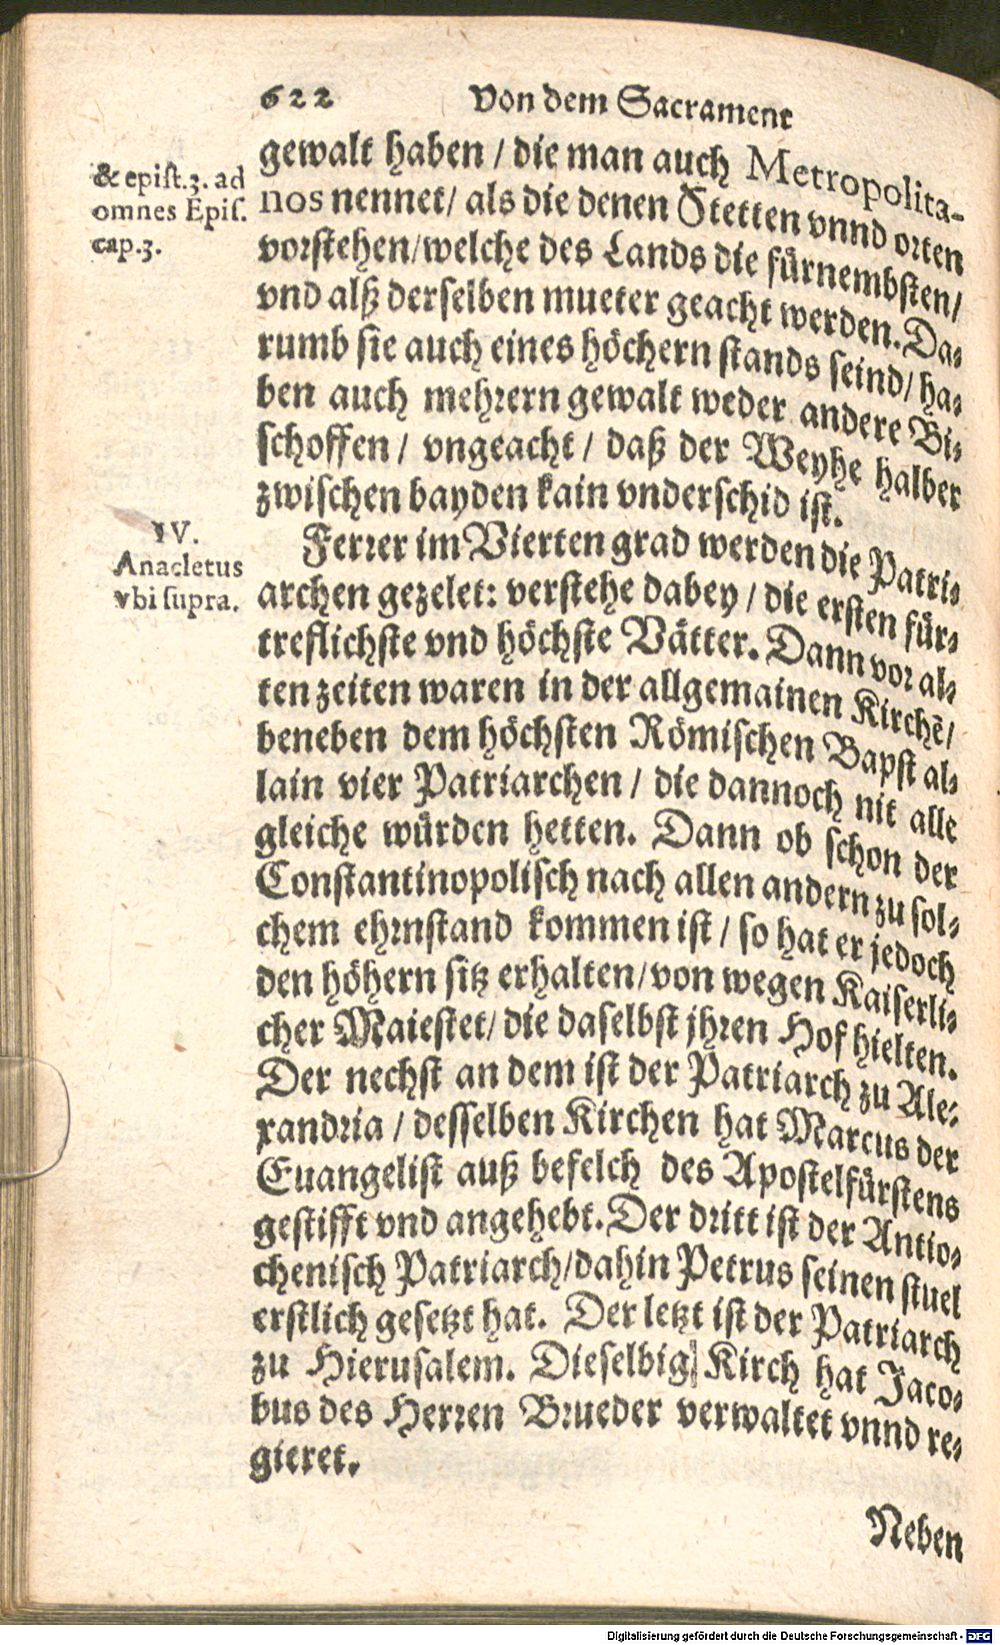 622 Von dem Sacrament
& epist.3. ad
omnes Epis.
cap.3.
gewalt haben / die man auch Metropolita-
nos nennet / als die denen Stetten vnnd orten
vorstehen / welche des Lands die fürnembsten /
vnd alß derselben mueter geacht werden. Da-
rumb sie auch eines höchern stands seind / ha-
ben auch mehrern gewalt weder andere Bi-
schoffen / vngeacht / daß der Weyhe halber
zwischen bayden kain vnderschid ist.
IV.
Anacletus
vbi supra.
Ferrer im Vierten grad werden die Patri-
archen gezelet: verstehe dabey / die ersten für-
treflichste vnd höchste Vätter. Dann vor al-
ten zeiten waren in der allgemainen Kirchē /
beneben dem höchsten Römischen Bapst al-
lain vier Patriarchen / die dannoch nit alle
gleiche würden hetten. Dann ob schon der
Constantinopolisch nach allen andern zu sol-
chem ehrnstand kommen ist / so hat er jedoch
den höhern sitz erhalten / von wegen Kaiserli-
cher Maiestet / die daselbst jhren Hof hielten.
Der nechst an dem ist der Patriarch zu Ale-
xandria / desselben Kirchen hat Marcus der
Euangelist auß befelch des Apostelfürstens
gestifft vnd angehebt. Der dritt ist der Antio-
chenisch Patriarch / dahin Petrus seinen stuel
erstlich gesetzt hat. Der letzt ist der Patriarch
zu Hierusalem. Dieselbig Kirch hat Jaco-
bus des Herren Brueder verwaltet vnnd re-
gieret.
Neben
Digitalisierung gefördert durch die Deutsche Forschungsgemeinschaft - DFG